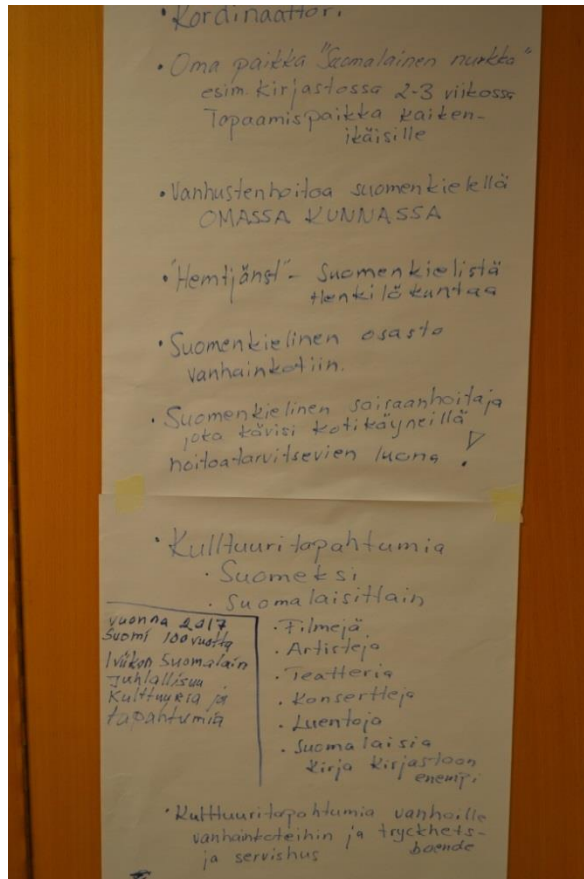 • Kordinaattori
• Oma paikka "Suomalainen nurkka"
esim. kirjastossa 2-3 viikossa
Tapaamispaikka kaiken-
ikäisille
• Vanhustenhoitoa suomenkielellä
OMASSA KUNNASSA
• "Hemtjänst" - Suomenkielistä
Henkilökuntaa
• Suomenkielinen osasto
vanhainkotiin.
• Suomenkielinen sairaanhoitaja
joka kävisi kotikäyneillä
hoitoatarvitsevien luona !
• Kulttuuritapahtumia
• Suomeksi
• Suomalaisittain
vuonna 2017
Suomi 100 vuotta
1 viikon Suomalain
juhlallisuu
Kulttuuria ja
tapahtumia
• Filmejä
• Artisteja
• Teatteria
• Konsertteja
• Luentoja
• Suomalaisia
kirja kirjastoon
enempi
• Kulttuuritapahtumia vanhoille
vanhainkoteihin ja tryckhets-
boende
ja servishus